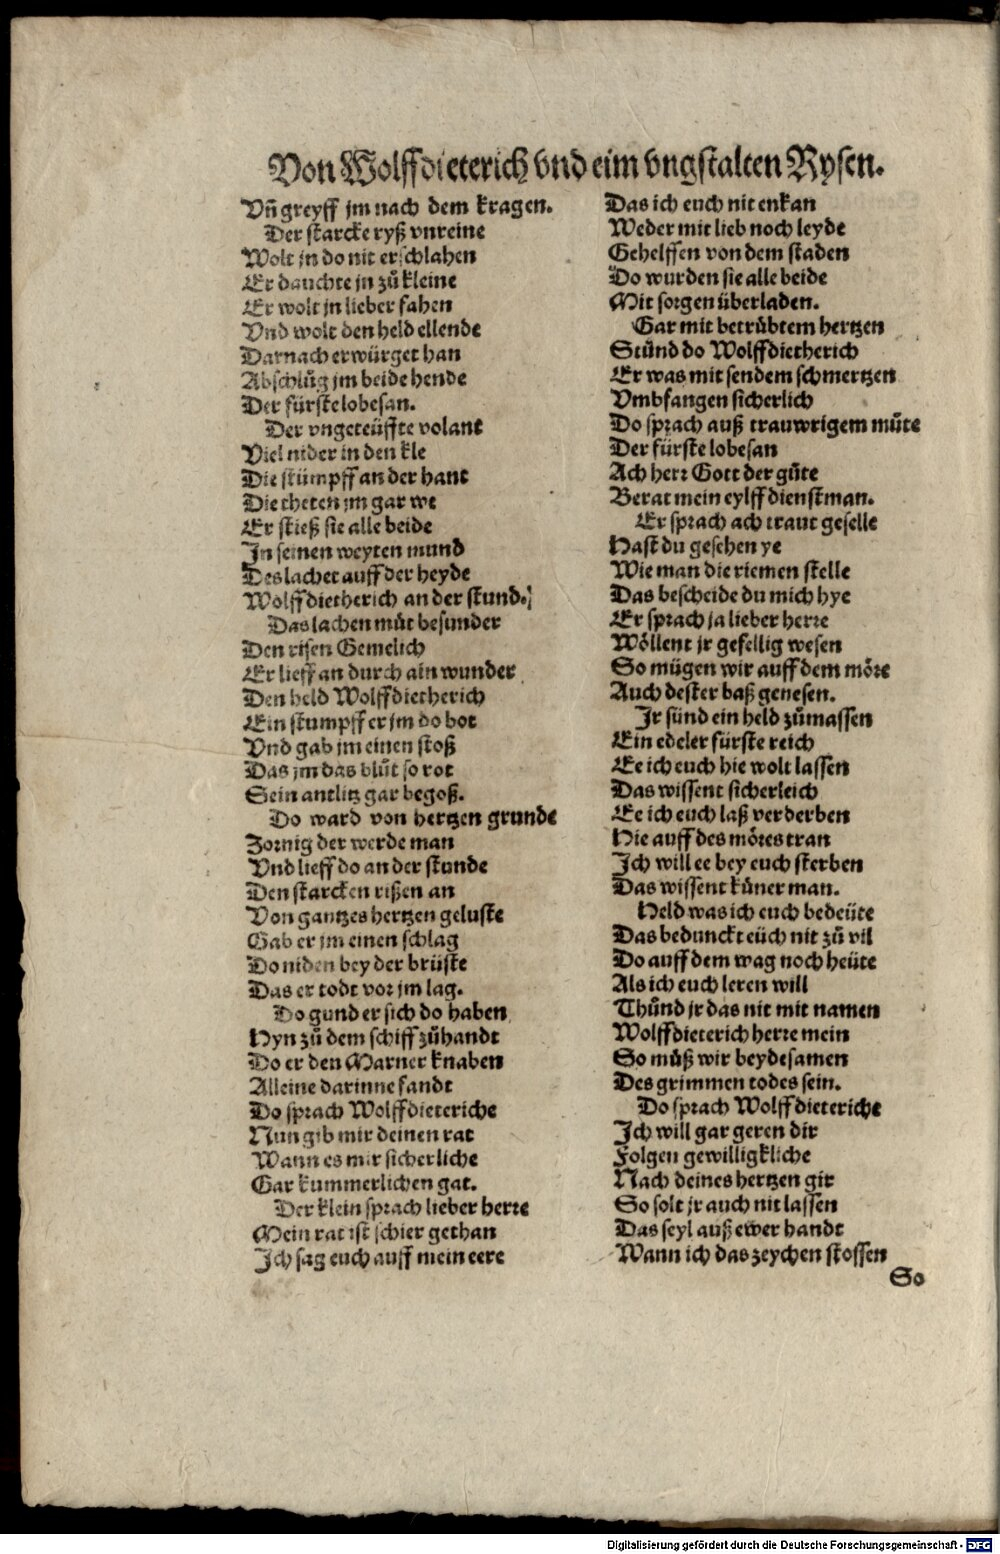 Von Wolffdieterich vnd eim vngstalten Rysen.
Vñ greyff jm nach dem kragen.
Der starcke ryß vnreine
Wolt jn do nit erschlahen
Er dauchte jn zů kleine
Er wolt jn lieber fahen
Vnd wolt den held ellende
Darnach erwürget han
Abschlůg jm beide hende
Der fürste lobesan.
Der vngeteüffte volant
Viel nider in den kle
Die stümpff an der hant
Die theten jm gar we
Er stieß sie alle beide
In seinen weyten mund
Des lachet auff der heyde
Wolffdietherich an der stund.
Das lachen můt besunder
Den risen Gemelich
Er lieff an durch ain wunder
Den held Wolffdietherich
Ein stumpff er jm do bot
Vnd gab jm einen stoß
Das jm das blůt so rot
Sein antlitz gar begoß.
Do ward von hertzen grunde
Zornig der werde man
Vnd lieff do an der stunde
Den starcken rißen an
Von gantzes hertzen geluste
Gab er jm einen schlag
Do niden bey der brüste
Das er todt vor jm lag.
Do gund er sich do haben
Hyn zů dem schiff zůhandt
Do er den Marner knaben
Alleine darinne fandt
Do sprach Wolffdieteriche
Nun gib mir deinen rat
Wann es mir sicherliche
Gar kummerlichen gat.
Der klein sprach lieber herre
Mein rat ist schier gethan
Ich sag euch auff mein eere
Das ich euch nit enkan
Weder mit lieb noch leyde
Gehelffen von dem staden
Do wurden sie alle beide
Mit sorgen überladen.
Gar mit betrübtem hertzen
Stůnd do Wolffdietherich
Er was mit sendem schmertzen
Vmbfangen sicherlich
Do sprach auß trauwrigem můte
Der fürste lobesan
Ach herr Gott der gůte
Berat mein eylff dienstman.
Er sprach ach traut geselle
Hast du gesehen ye
Wie man die riemen stelle
Das bescheide du mich hye
Er sprach ja lieber herre
Wöllent jr gefellig wesen
So mügen wir auff dem möre
Auch dester baß genesen.
Ir sünd ein held zůmassen
Ein edeler fürste reich
Ee ich euch hie wolt lassen
Das wissent sicherleich
Ee ich euch laß verderben
Hie auff des möres tran
Ich will ee bey euch sterben
Das wissent küner man.
Held was ich euch bedeüte
Das bedunckt eüch nit zů vil
Do auff dem wag noch heüte
Als ich euch leren will
Thůnd jr das nit mit namen
Wolffdieterich herre mein
So můß wir beydesamen
Des grimmen todes sein.
Do sprach Wolffdieteriche
Ich will gar geren dir
Folgen gewilligkliche
Nach deines hertzen gir
So solt jr auch nit lassen
Das seyl auß ewer handt
Wann ich das zeychen stossen
So
Digitalisierung gefördert durch die Deutsche Forschungsgemeinschaft - DFG